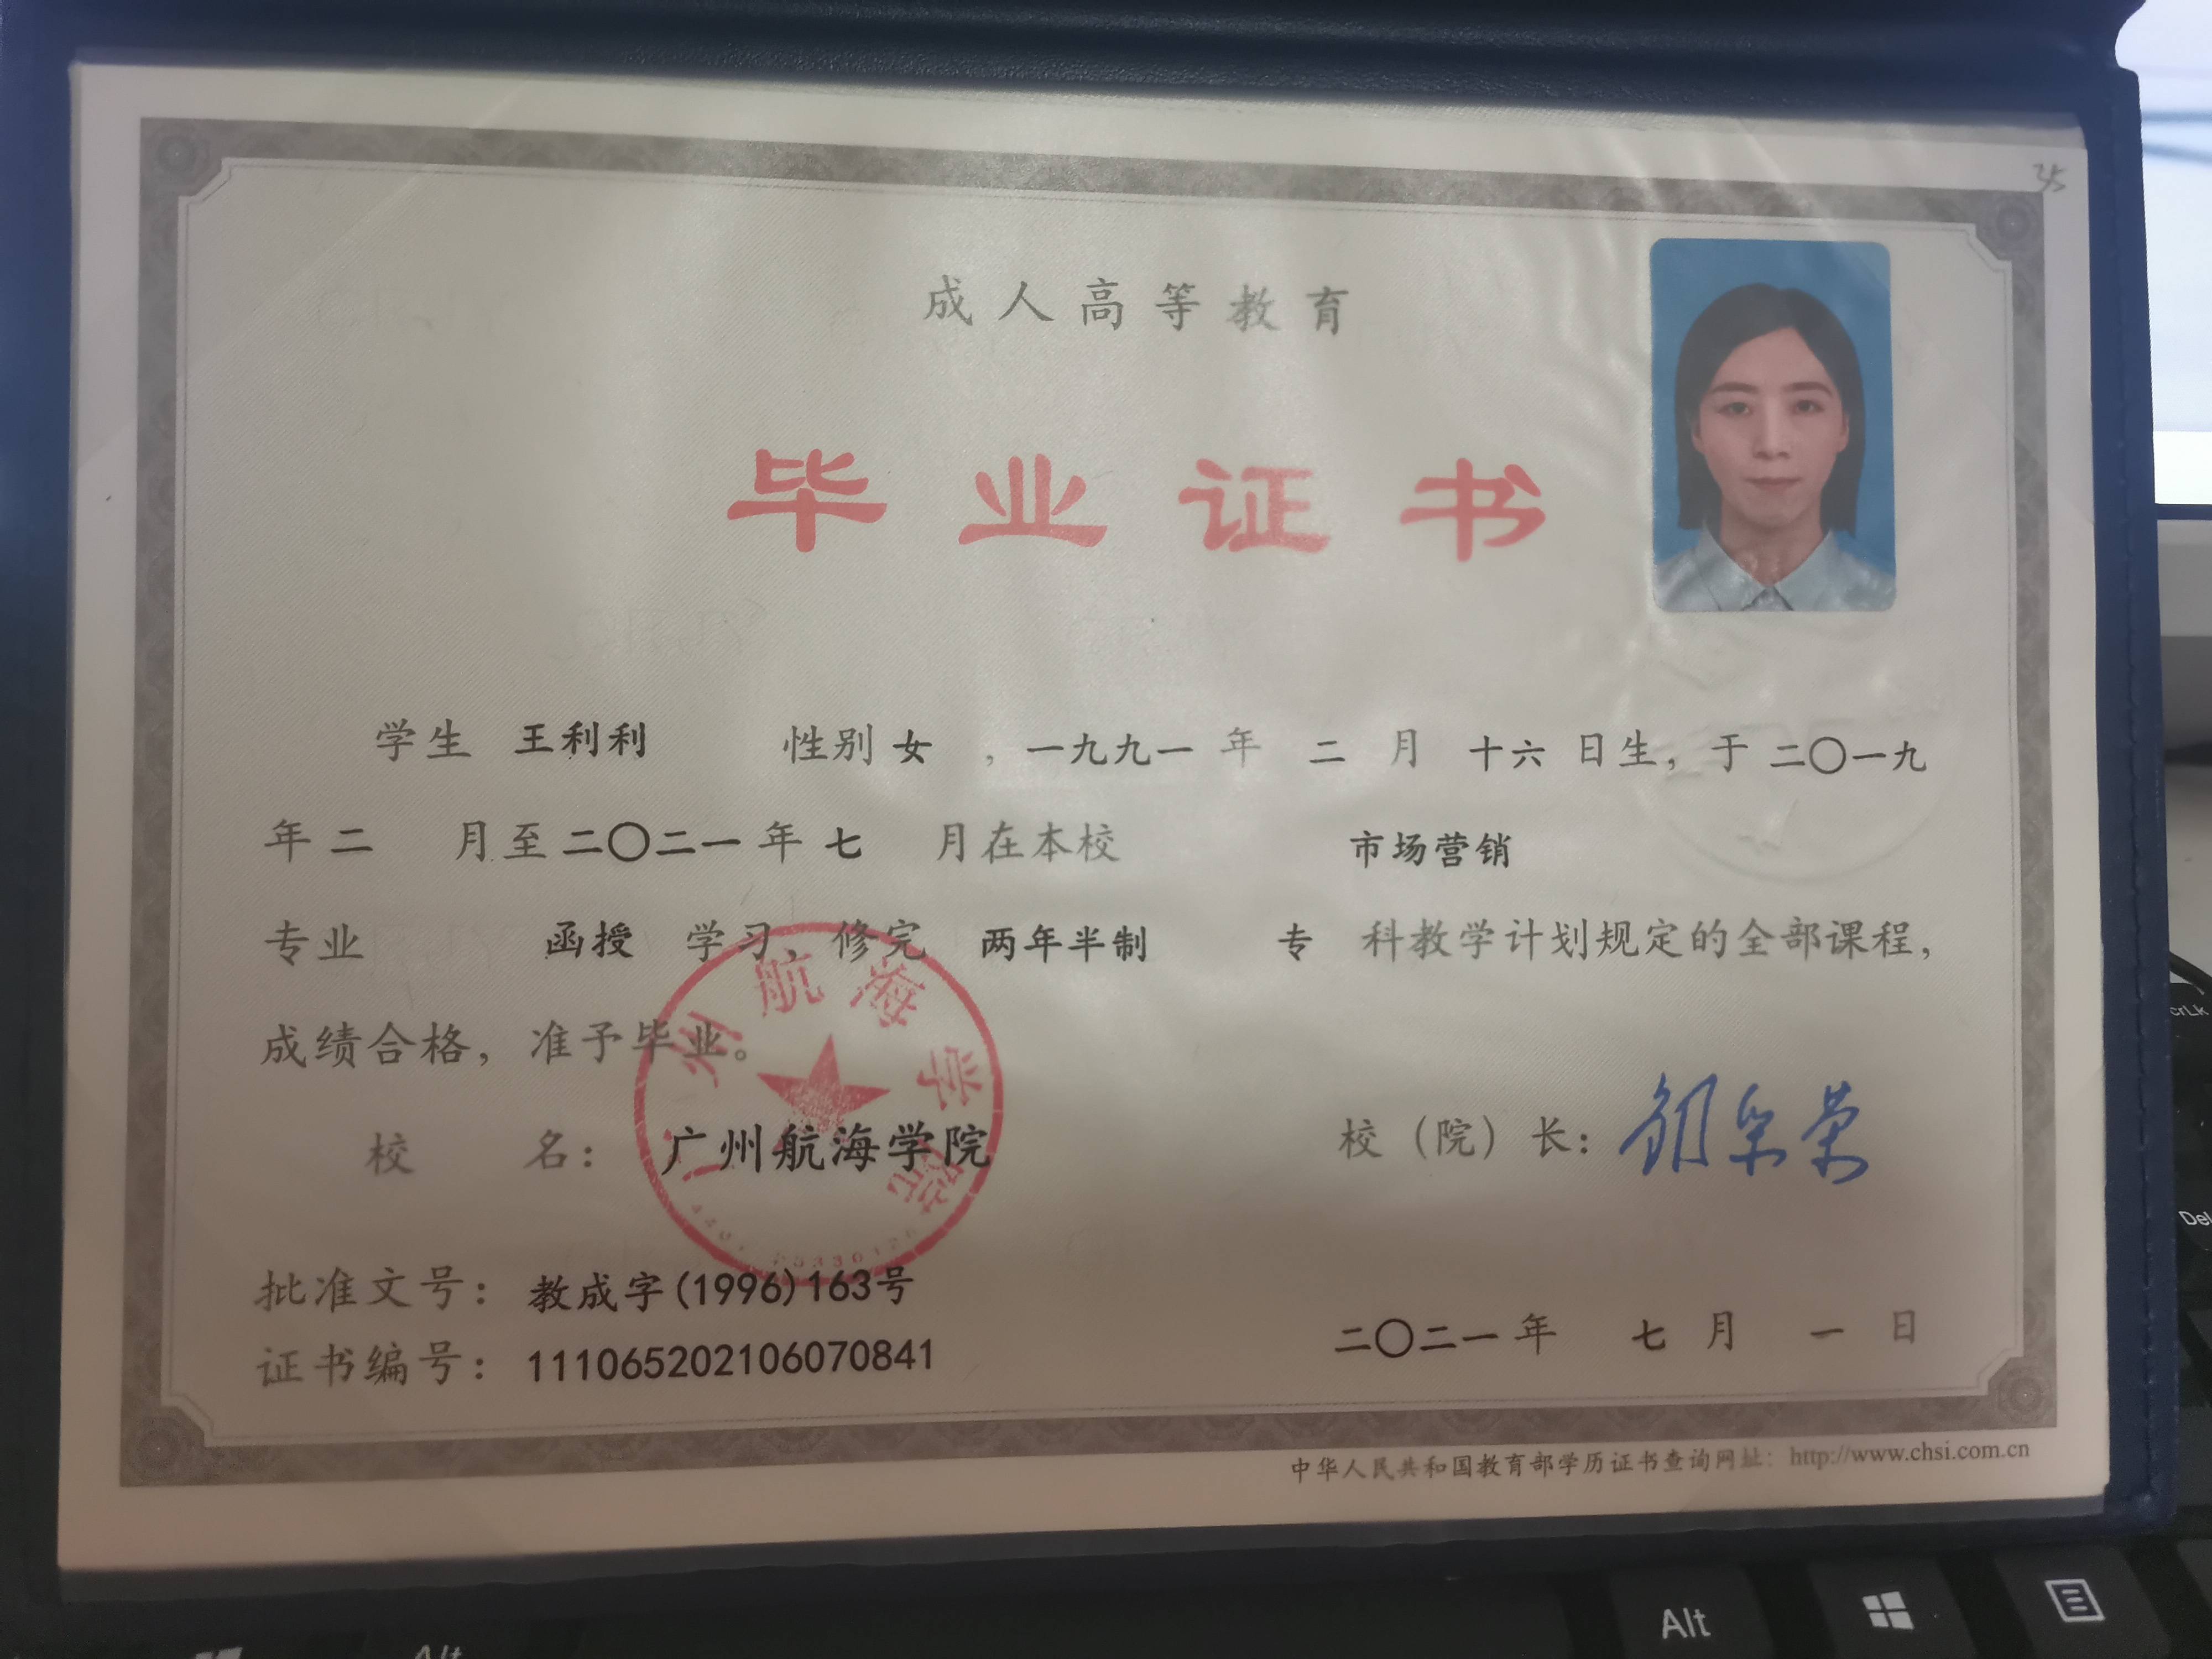 35
成人高等教育
毕业证书
学生 王利利 性别 女 ，一九九一 年 二 月 十六 日生，于 二〇一九
年 二 月至 二〇二一 年 七 月在本校 市场营销
专业 函授 学习，修完 两年半制 专 科教学计划规定的全部课程，
成绩合格，准予毕业。
校 名： 广州航海学院
校（院）长：
批准文号： 教成字(1996)163号
证书编号： 111065202106070841
二〇二一 年 七 月 一 日
中华人民共和国教育部学历证书查询网址：http://www.chsi.com.cn
广州航海学院
crLk
Del
Alt
Alt